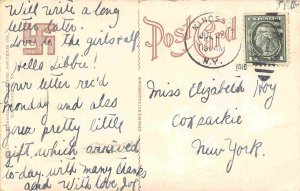 Will write a long
letter later.
Love to the girls & all.
Hello Libbie!
your letter rec'd
Monday and also
your pretty little
gift, which arrived
to-day. with many thanks
and with love, Joy
Post Card
KINGSTON
N.Y.
1916
Miss Elizabeth Hoy
Coxsackie
New York.